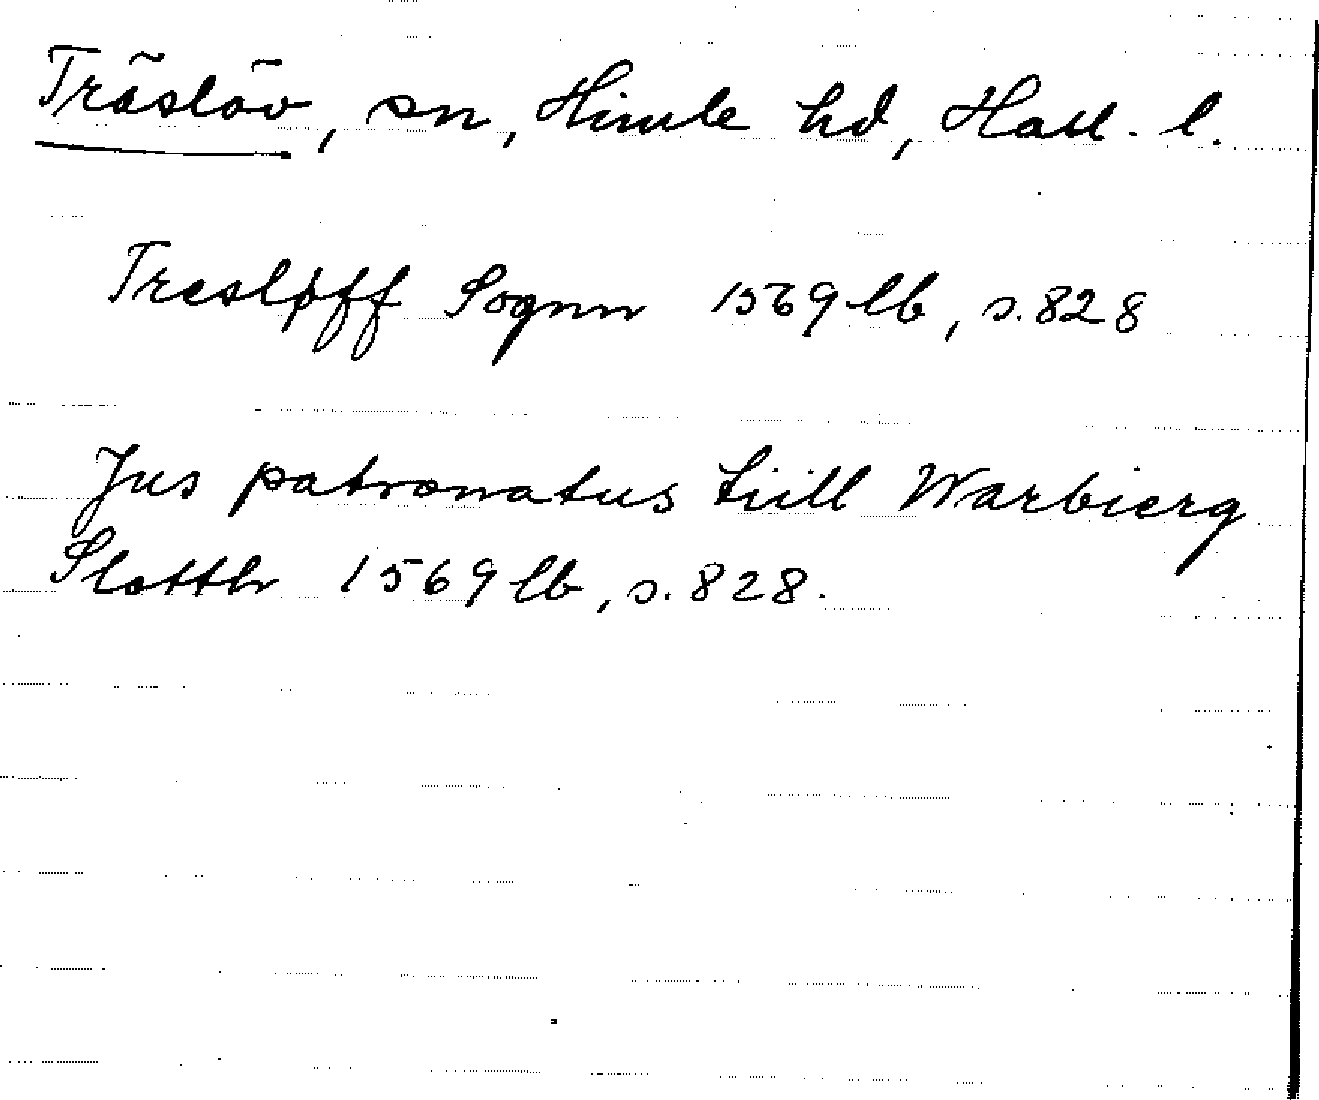 Träslöv, sn, Himle hd, Hall. l.
Tresløff Sognn 1569 lb, s. 828
Jus patronatus tiill Warbierg
Slotth 1569 lb, s. 828.